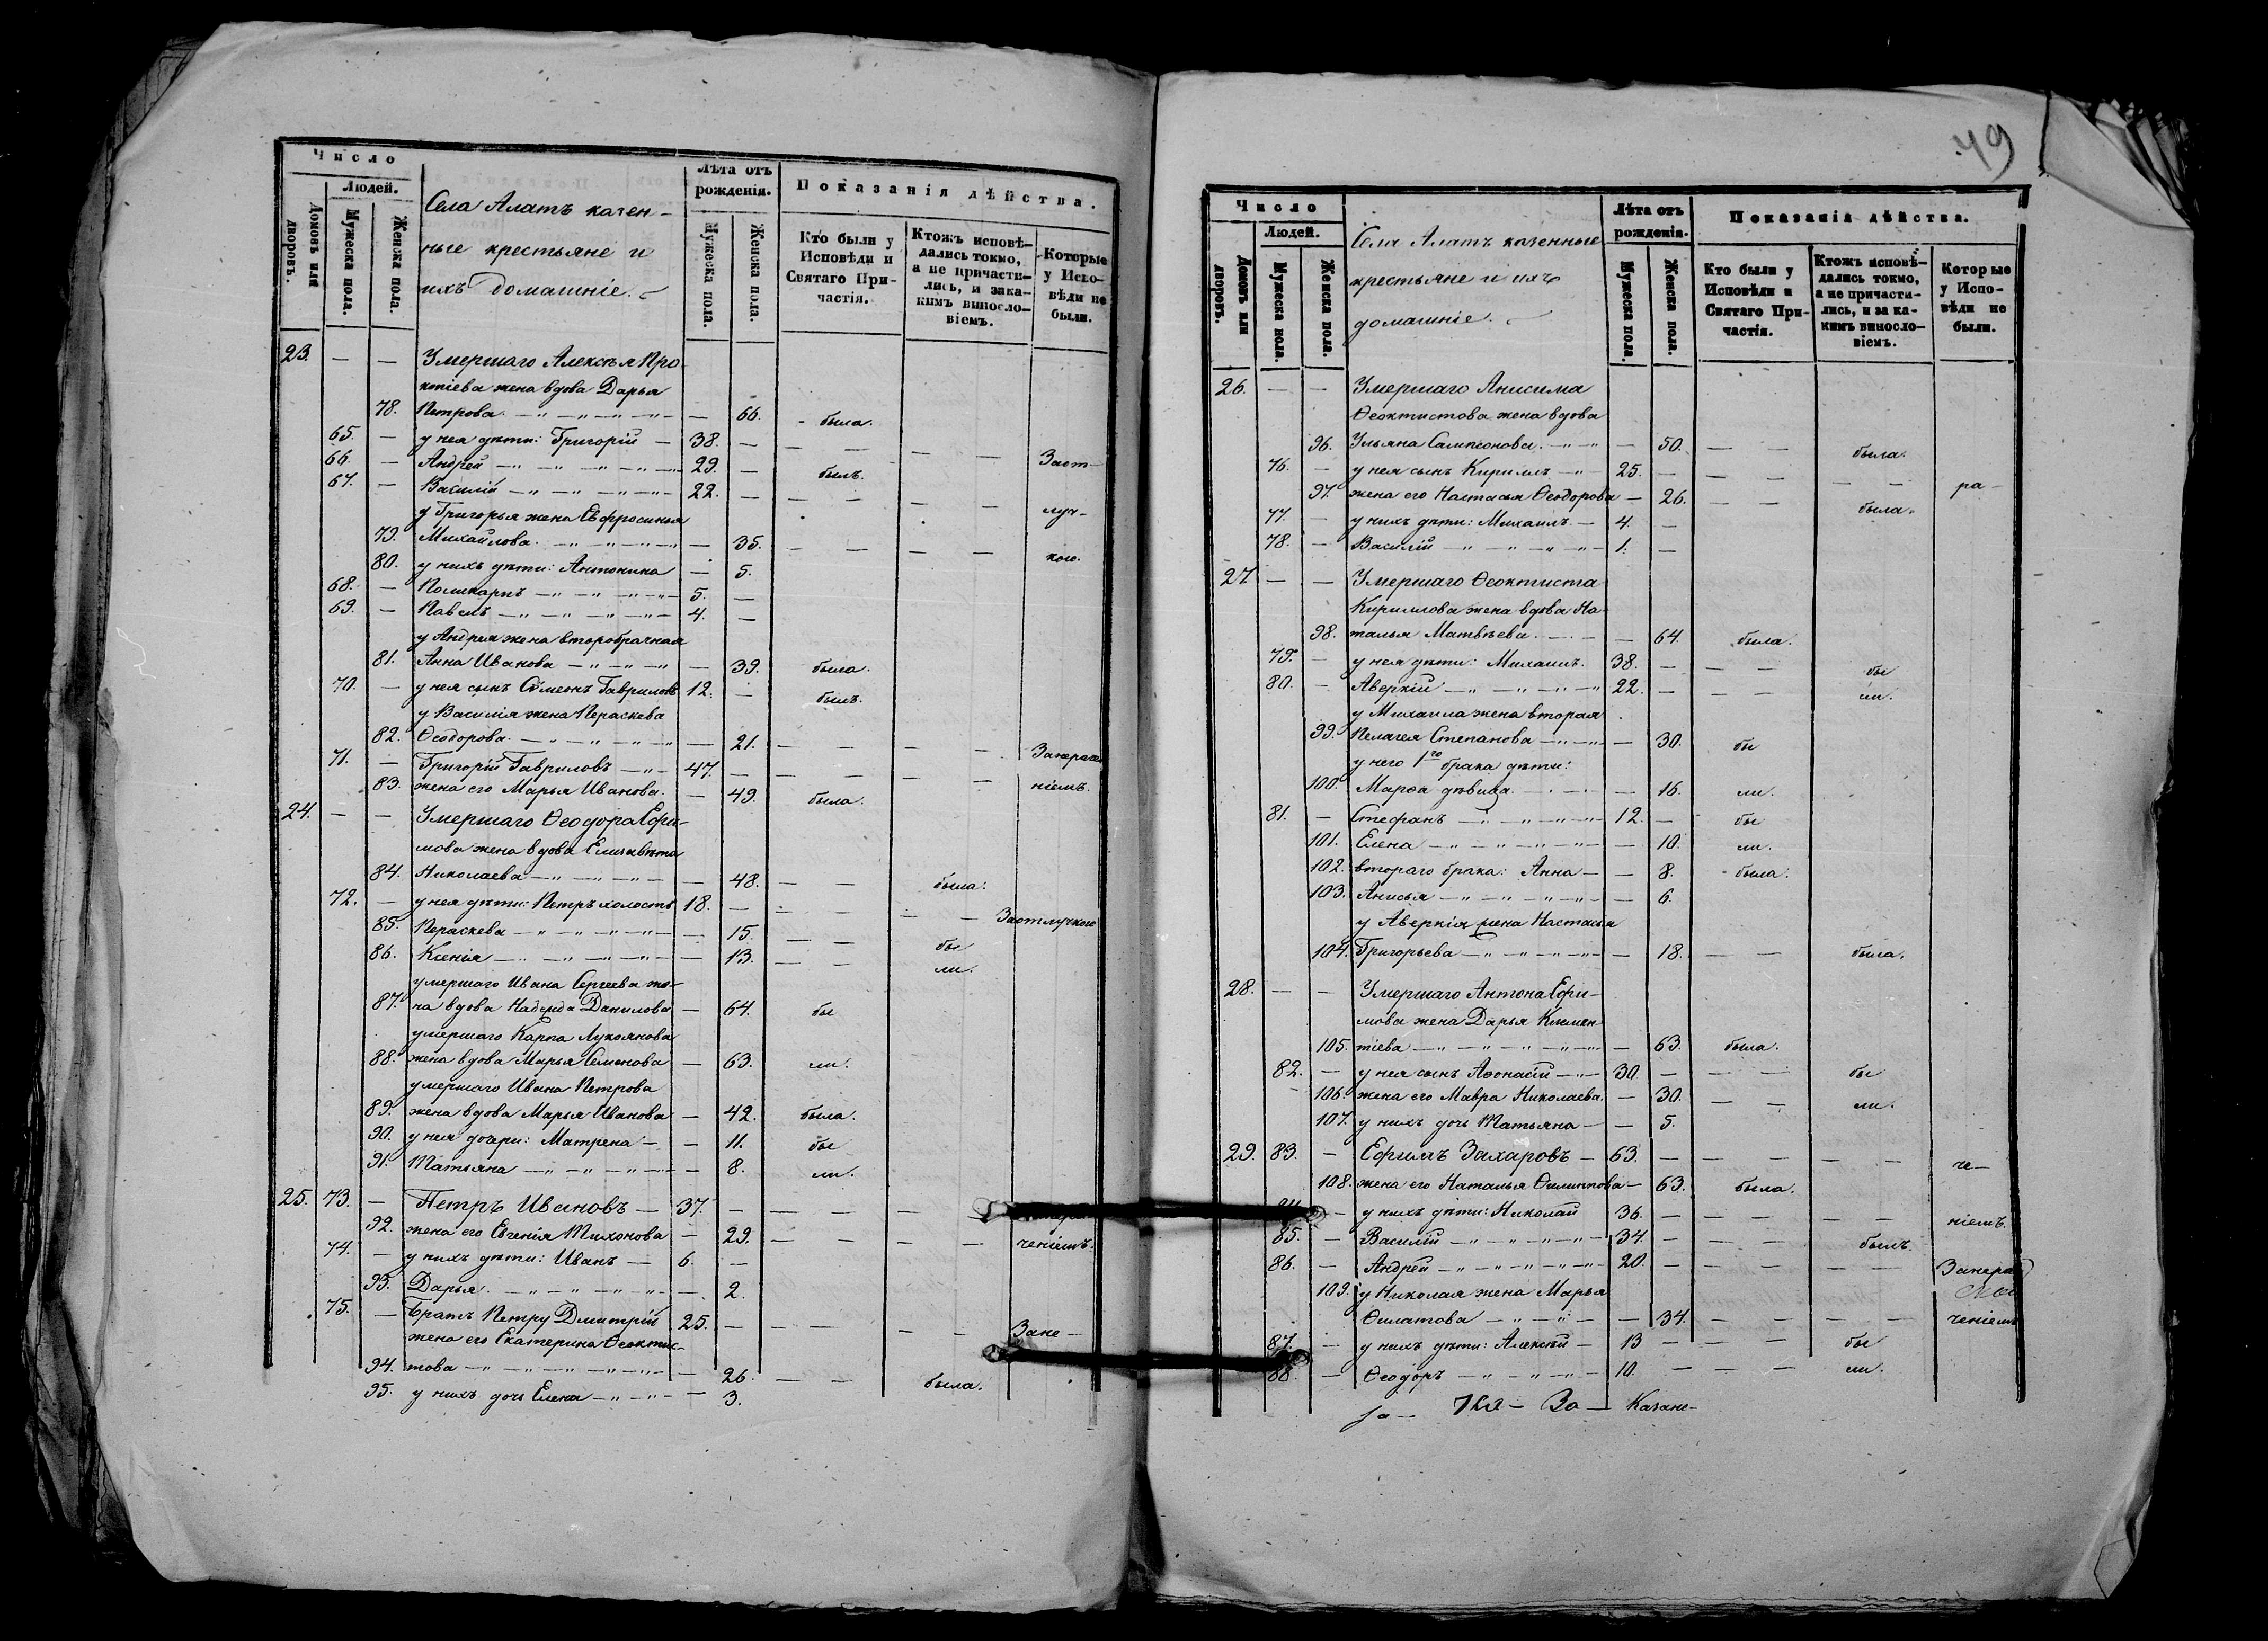 Число
Людей.
Домовъ или дворовъ.
Мужеска пола.
Женска пола.
Села Алатъ казен-
ные крестьяне и
ихъ домашніе.
Лѣта отъ рожденія.
Мужеска пола.
Женска пола.
Показанія дѣйства.
Кто были у Исповѣди и Святаго При-частія.
Ктожъ исповѣ-дались токмо, а не причасти-лись, и зака-кимъ виносло-віемъ.
Которые у Испо-вѣди не были.
23. — — Умершаго Алексѣя Про
копіева жена вдова Дарья
78. Петрова — „ — „ — „ — — 66. была.
65. — у нея дѣти: Григорій — 38. — — — — — Заот-
66. — Андрей — „ — „ — „ — 29. — былъ.
67. — Василій — „ — „ — „ — 22. — — — — — луч-
у Григорья жена Евфросинья
79. Михайлова — „ — „ — „ — — 35. — — — — кою.
80. у нихъ дѣти: Антонина — 5.
68. — Поликарпъ — „ — „ — „ — 5. —
69. — Павелъ — „ — „ — „ — 4. —
у Андрея жена второбрачная
81. Анна Иванова — „ — „ — „ — 39. была.
70. — у нея сынъ Симеонъ Гавриловъ 12. — былъ.
у Василія жена Пераскева
82. Ѳеодорова — „ — „ — „ — — 21. — — — — Занерач
71. — Григорій Гавриловъ — „ — 47. — — — — — ніемъ.
83. жена его Марья Иванова. — 49. была.
24. — — Умершаго Ѳеодора Ефи-
мова жена вдова Елизавѣта
84. Николаева — „ — „ — „ — — 48. — — была.
72. — у нея дѣти: Петръ холостъ 18. — — — — — Заотлучкою
85. Пераскева — „ — „ — „ — — 15. — — бы
86. Ксенія — „ — „ — „ — — 13. — — ли.
умершаго Ивана Сергеева же-
87. на вдова Надежда Данилова — 64. бы
умершаго Карпа Лукоянова
88. жена вдова Марья Семенова — 63. ли.
умершаго Ивана Петрова
89. жена вдова Марья Иванова — 42. была.
90. у нея дочери: Матрена — — 11. бы
91. Татьяна — „ — „ — „ — — 8. ли.
25. 73. — Петръ Ивановъ — 37. — — — — —
92. жена его Евгенія Тихонова — 29. — — — — ченіемъ.
74. — у нихъ дѣти: Иванъ — 6. —
93. Дарья. — „ — „ — „ — — 2.
75. — Братъ Петру Дмитрій 25. — — — — — Зане-
жена его Екатерина Ѳеоктис-
94. това — „ — „ — „ — — 26. — — была.
95. у нихъ дочь Елена — „ — „ — 3.
49
Число
Людей.
Домовъ или дворовъ.
Мужеска пола.
Женска пола.
Села Алатъ казенные
крестьяне и ихъ
домашніе.
Лѣта отъ рожденія.
Мужеска пола.
Женска пола.
Показанія дѣйства.
Кто были у Исповѣди и Святаго При-частія.
Ктожъ исповѣ-дались токмо, а не причасти-лись, и за ка-кимъ виносло-віемъ.
Которые у Испо-вѣди не были.
26. — — Умершаго Анисима
Ѳеоктистова жена вдова
96. Ульяна Сампсонова. — „ — „ — 50. — — была.
76. — у нея сынъ Кириллъ — „ 25. — — — — — ра-
97. жена его Настасья Ѳеодорова — 26. — — была.
77. — у нихъ дѣти: Михаилъ. — 4. —
78. — Василій — „ — „ — „ — 1. —
27 — — Умершаго Ѳеоктиста
Кириллова жена вдова На-
98. талья Матвѣева. — — — 64. была.
79. — у нея дѣти: Михаилъ. 38. — — — бы
80. — Аверкій — „ — „ — „ — 22. — — — ли.
у Михаила жена вторая
99. Пелагея Степанова — „ — „ — 30. бы
у него 1го брака дѣти:
100. Марѳа дѣвица. — — — — 16. ли.
81. — Стефанъ — „ — „ — „ — 12. — бы
101. Елена — „ — „ — „ — — 10. ли.
102. втораго брака: Анна — — 8. была.
103. Анисья — „ — „ — „ — — 6.
у Аверкія жена Настасья
104. Григорьева — „ — „ — „ — — 18. — — была.
28. — — Умершаго Антона Ефи-
мова жена Дарья Климен-
105. тіева — „ — „ — „ — — 63. была.
82. — у нея сынъ Аѳонасій — „ — 30. — — — бы
106. жена его Мавра Николаева. — 30. — — ли.
107. у нихъ дочь Татьяна — — 5.
29. 83. — Ефимъ Захаровъ — 63. — — — — — че-
108. жена его Наталья Филиппова — 63. была.
— у нихъ дѣти: Николай 36. — — — — — ніемъ.
85. — Василій — „ — „ — „ — 34. — — — былъ.
86. — Андрей — „ — „ — „ — 20. — — — — — Занера
109. у Николая жена Марья
Филатова — „ — „ — — 34. — — — — ченіемъ
87. — у нихъ дѣти: Алексѣй — 13 — — — бы
88. — Ѳеодоръ — „ — „ — „ — 10. — — — ли.
За — Казане-